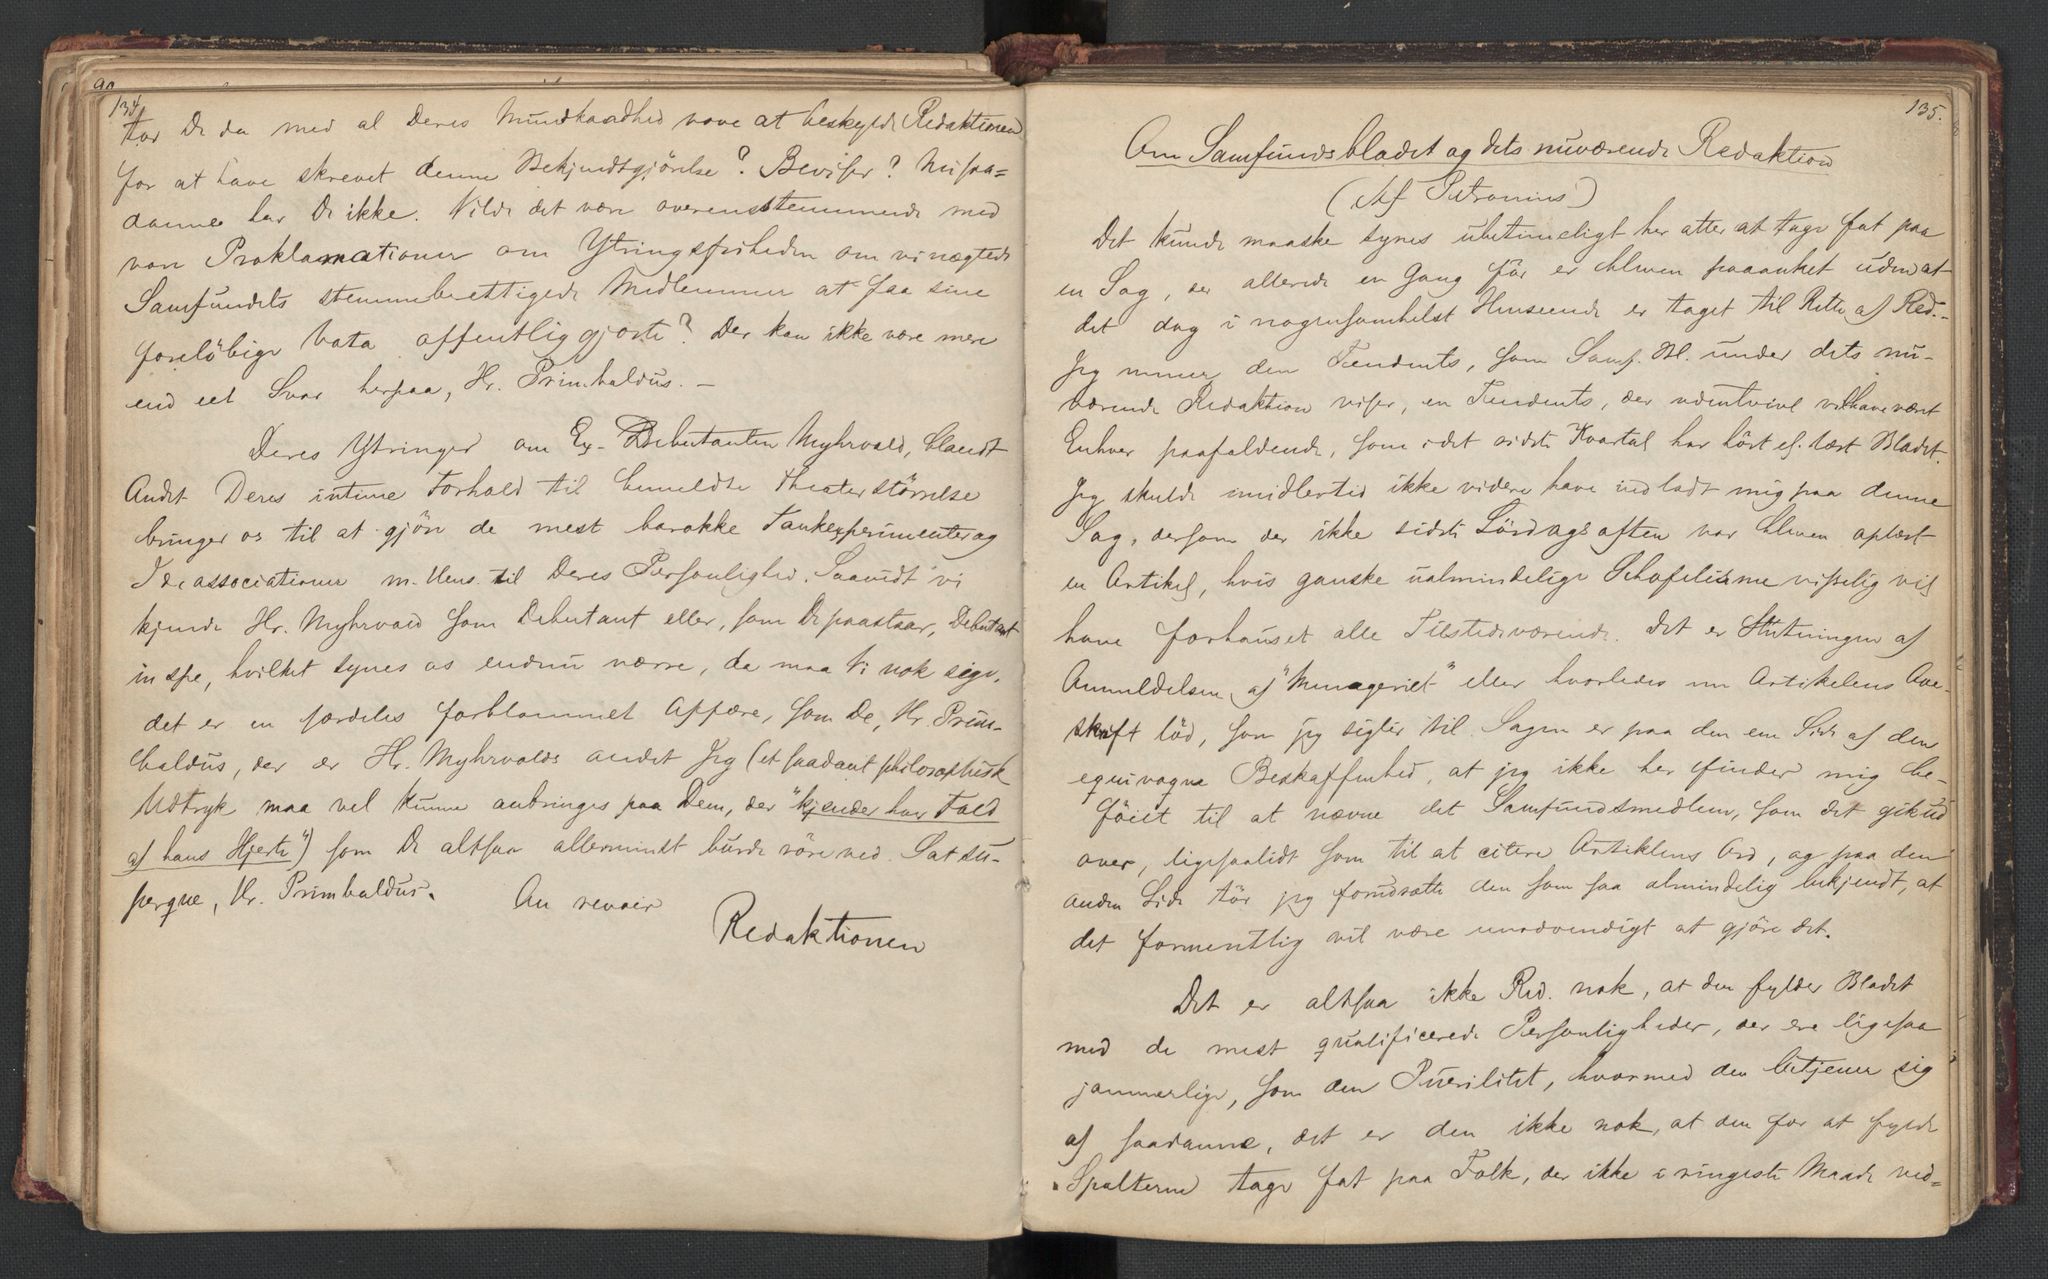 134.
Tør De da med al Deres Mundkaadhed vove at beskylde Redaktionen
for at have skrevet denne Bekjendtgjörelse? Beviser? Nu saa=
danne har De ikke. Vilde det være overensstemmende med
vore Proklamationer om Ytringsfriheden om vi nægtede
Samfundets stemmeberettigede Medlemmer at faa sine
foreløbige Vota offentliggjorte? Der kan ikke være mere
end eet Svar herpaa, Hr. Primbaldus. —
Deres Ytringer om Ex-Debutanten Myhrvold, blandt
Andet Deres intime Forhold til bemeldte Theaterstörrelse
bringer os til at gjöre de mest barokke Tankexperimenter og
Ideassociationer m. Hens. til Deres Personlighed. Saavidt vi
kjende Hr. Myhrvold som Debutant eller, som De paastaar, Debutant
in spe, hvilket synes os endnu værre, da maa vi nok sige,
det er en særdeles forblommet Affære, som De, Hr. Prim-
baldus, der er Hr. Myhrvolds andet Jeg (et saadant philosophisk
Udtryk maa vel kunne anbringes paa Dem, der "kjender hver Fold
af hans Hjerte") som De altsaa allermindst burde röre ved. Sat su-
perque, Hr. Primbaldus.
Au revoir
Redaktionen
135.
Om Samfundsbladet og dets nuværende Redaktion
(Af Petronius)
Det kunde maaske synes ubetimeligt her atter at tage fat paa
en Sag, der allerede en Gang för er bleven paaanket uden at
det dog i nogensomhelst Henseende er taget til Rette af Red. -
Jeg mener den Tendents, som Samf. Bl. under dets nu-
værende Redaktion viser, en Tendents, der udentvivl vil have været
Enhver paafaldende, som i det sidste Kvartal har hört el. læst Bladet.
Jeg skulde imidlertid ikke videre have indladt mig paa denne
Sag, dersom der ikke sidste Lördagsaften var bleven oplæst
en Artikel, hvis ganske ualmindelige Schofelisme visselig vil
have forbauset alle Tilstedeværende. Det er Slutningen af
Anmeldelsen af "Menageriet" eller hvorledes nu Artikelens Ove-
skrift löd, som jeg sigter til. Sagen er paa den ene Side af den
equivoque Beskaffenhed, at jeg ikke her finder mig be-
föiet til at nævne det Samfundsmedlem, som det gik ud
over, ligesaalidt som til at citere Artiklens Ord, og paa den
anden Side tör jeg forudsætte den som saa almindelig bekjendt, at
det formentlig vil være unødvendigt at gjöre det.
Det er altsaa ikke Red. nok, at den fylder Bladet
med de mest qualificerede Personligheder, der ere ligesaa
jammerlige, som den Puerilitet, hvormed den betjener sig
af saadanne, det er den ikke nok, at den for at fylde
Spalterne tage fat paa Folk, der ikke i ringeste Maade ved=